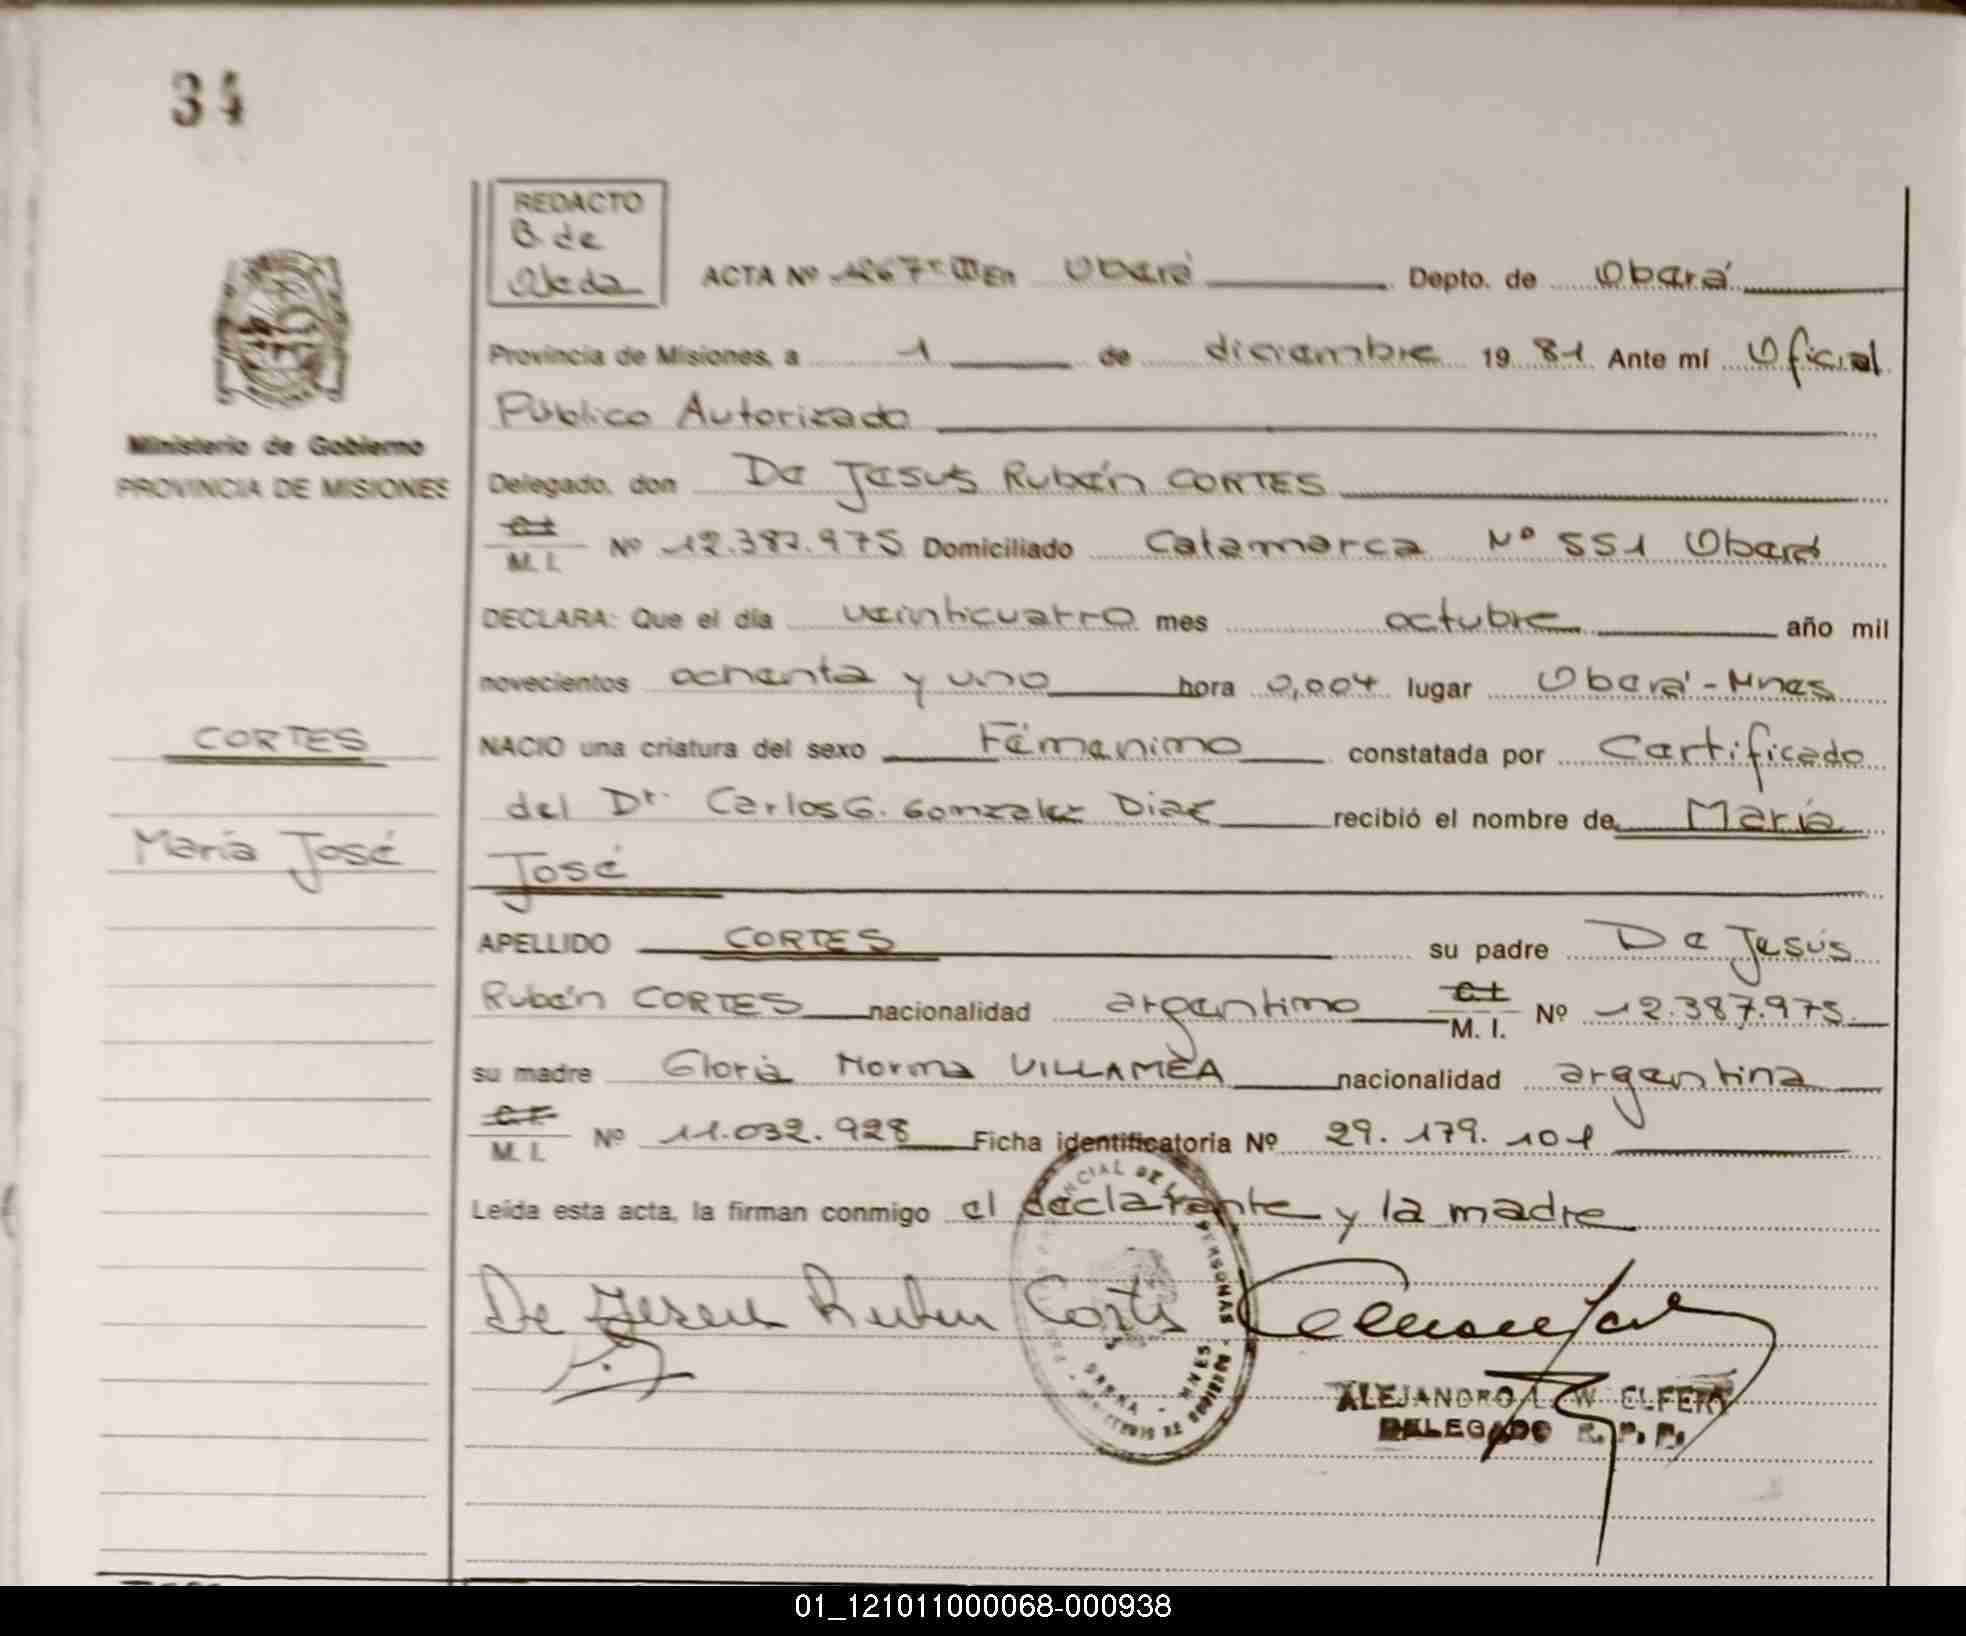 34
REDACTO
B. de
Ojeda
ACTA Nº 1267-III En Oberá Depto. de Oberá
Provincia de Misiones, a 1 de diciembre 19 81 Ante mí Oficial
Público Autorizado
Ministerio de Gobierno
PROVINCIA DE MISIONES
Delegado, don De Jesus Rubén CORTES
C.I.
M. I. Nº 12.387.975 Domiciliado Catamarca Nº 551 Oberá
DECLARA: Que el día veinticuatro mes octubre año mil
novecientos ochenta y uno hora 0,004 lugar Oberá - Mnes
CORTES
NACIO una criatura del sexo Fémenino constatada por Certificado
del Dr. Carlos G. Gonzalez Diaz recibió el nombre de María
María José
José
APELLIDO CORTES su padre De Jesús
Rubén CORTES nacionalidad argentino C.I.
M. I. Nº 12.387.975.
su madre Gloria Norma VILLAMEA nacionalidad argentina
C.I.
M. I. Nº 11.032.928 Ficha identificatoria Nº 29.179.101
Leída esta acta, la firman conmigo el declarante y la madre
De Jesus Ruben Cortes
ALEJANDRO L. W. ELFERT
DELEGADO R. P. P.
01_121011000068-000938